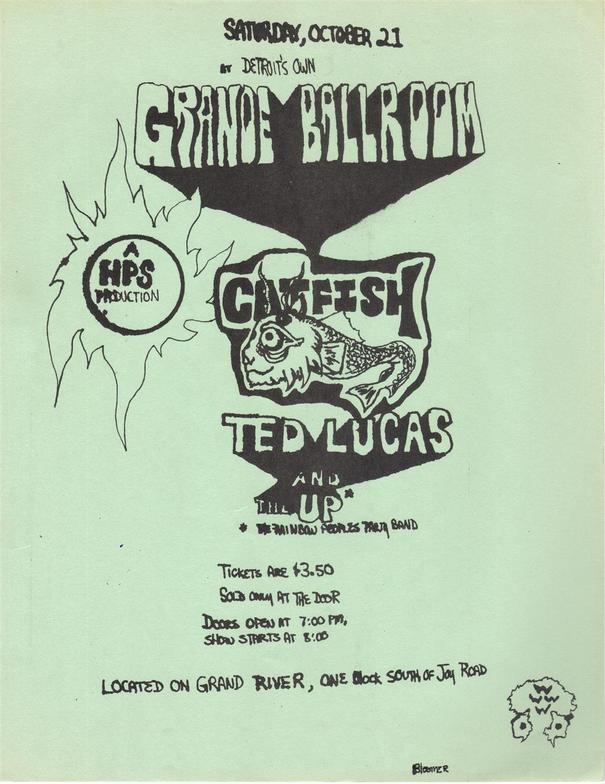 SATURDAY, OCTOBER 21
AT DETROIT'S OWN
GRANDE BALLROOM
A
HPS
PRODUCTION
CATFISH
TED LUCAS
AND
THE UP*
* THE RAINBOW PEOPLES PARTY BAND
TICKETS ARE $3.50
SOLD ONLY AT THE DOOR
DOORS OPEN AT 7:00 PM,
SHOW STARTS AT 8:00
LOCATED ON GRAND RIVER, ONE Block SOUTH OF Joy ROAD
BLOOMER